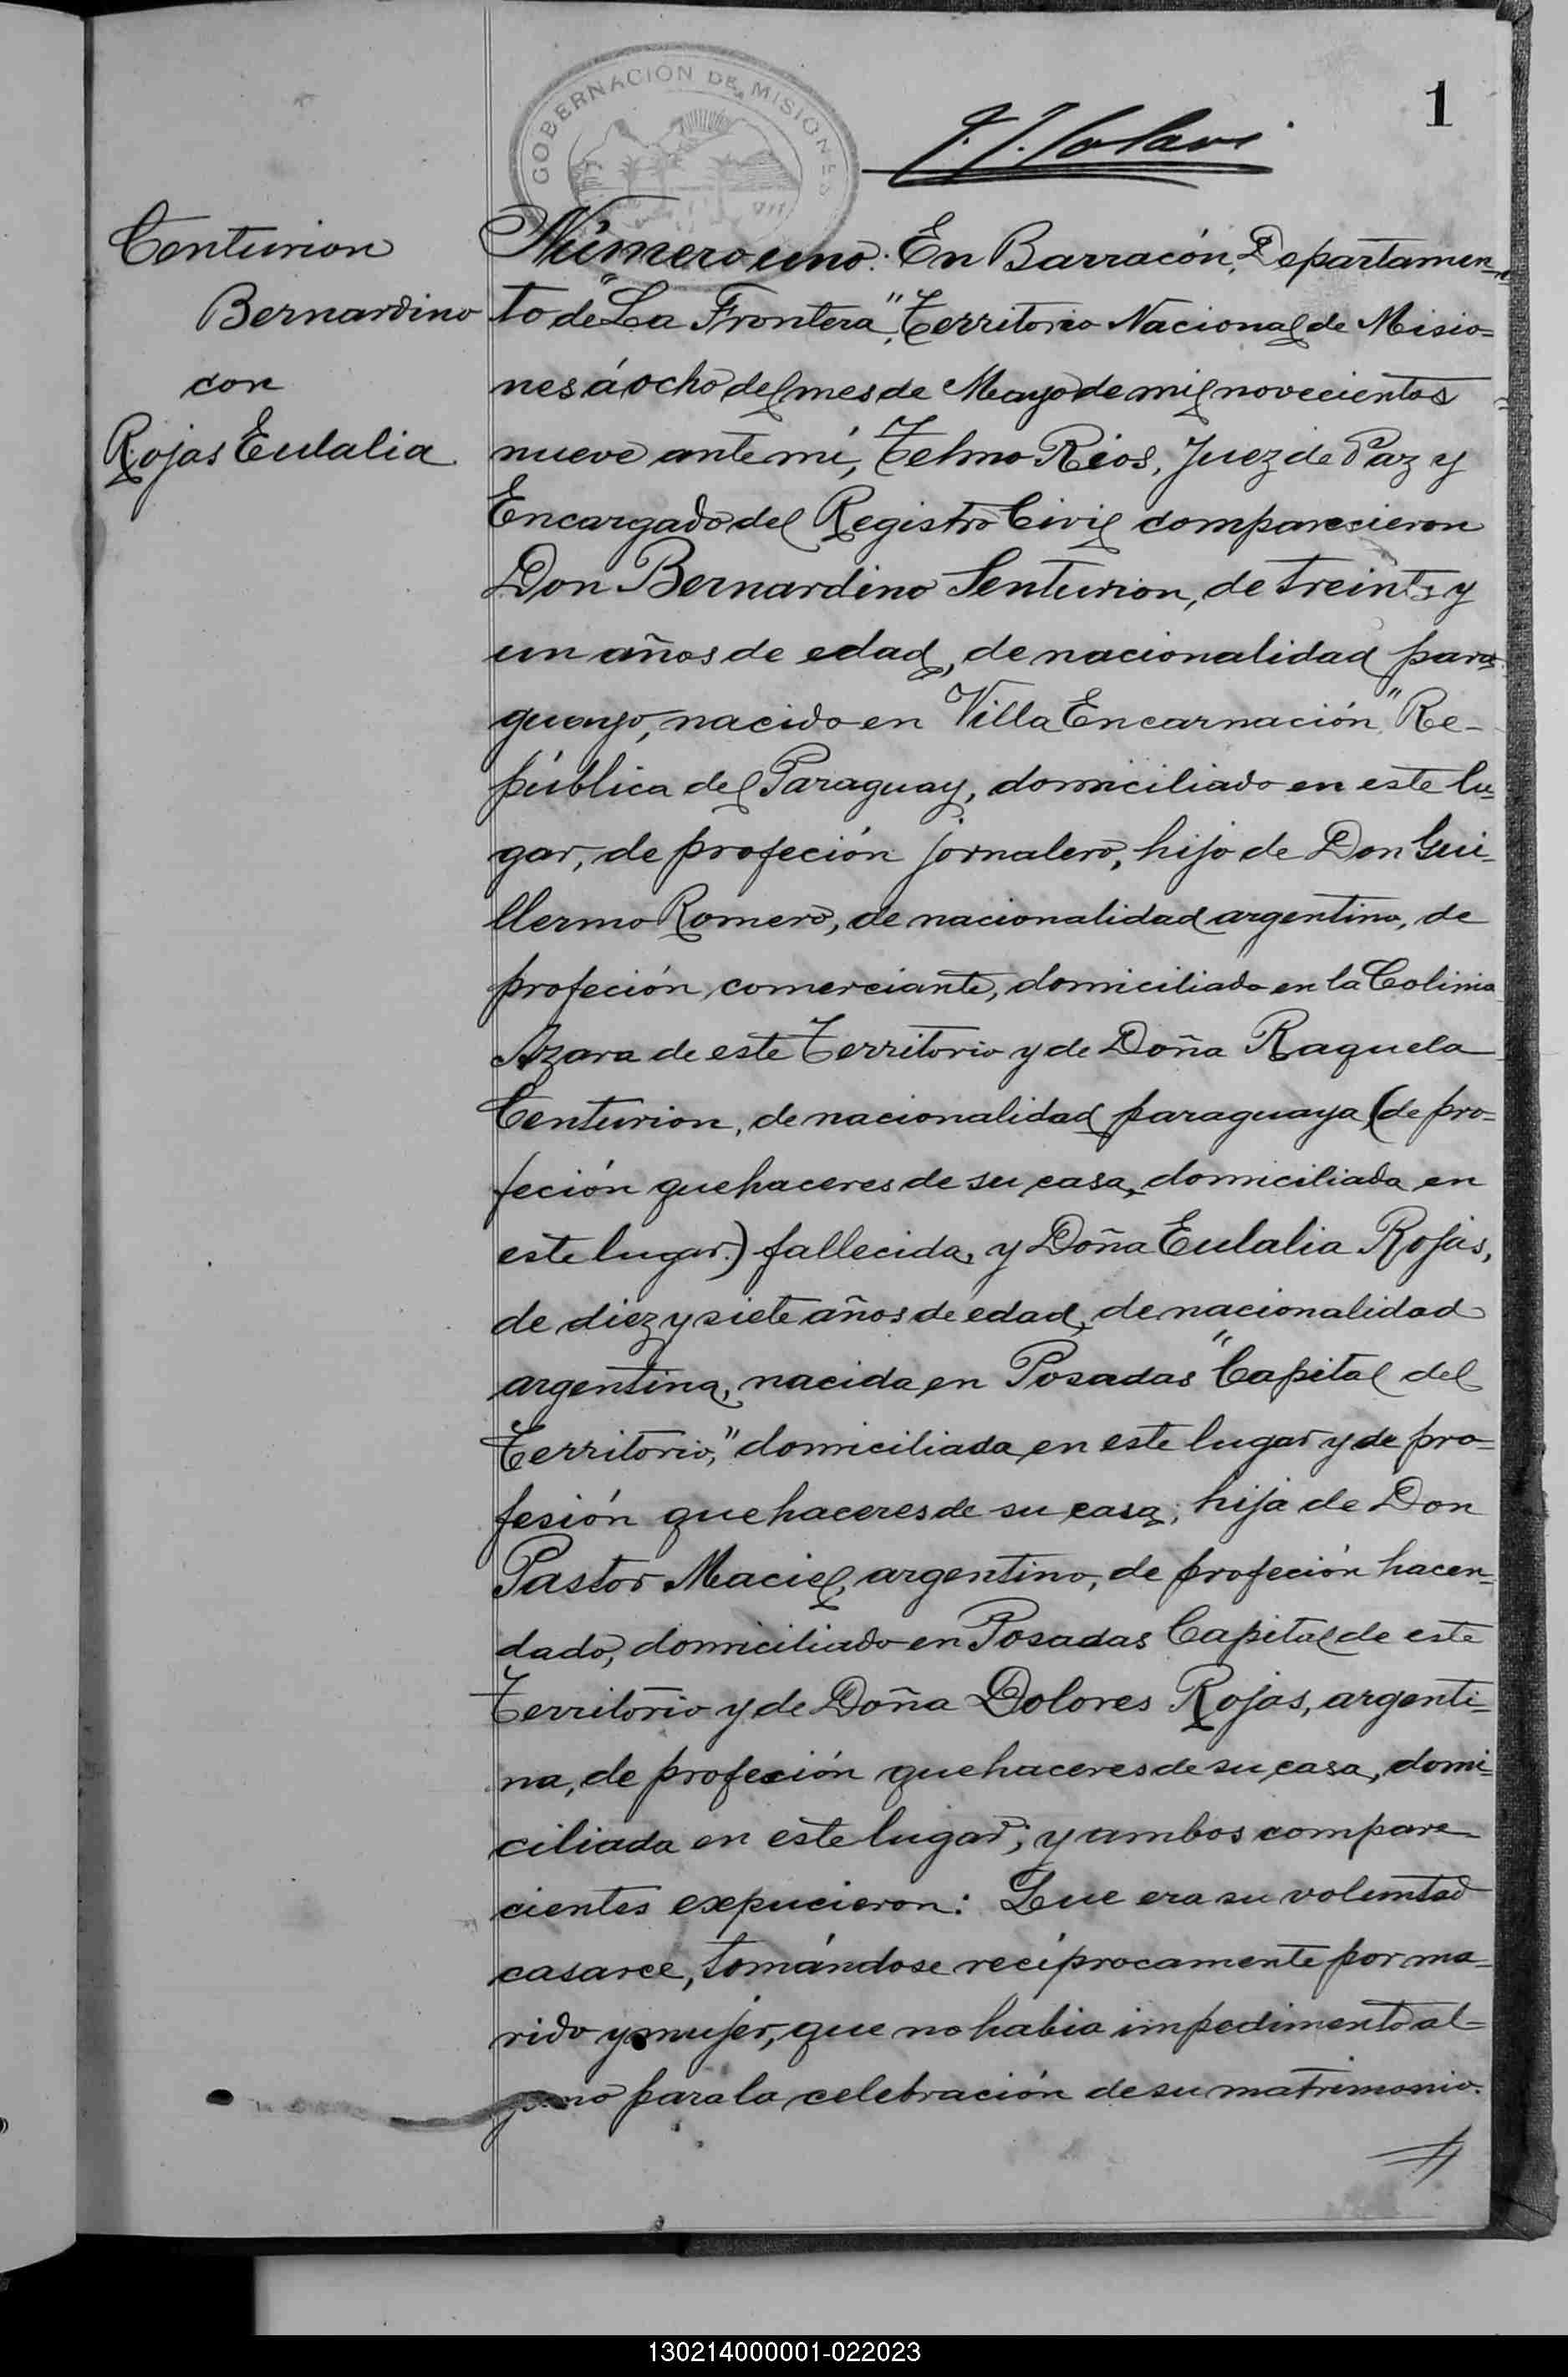 GOBERNACION DE MISIONES
1
Centurion
Bernardino
con
Rojas Eulalia
Número uno: En Barracón, Departamen-
to de "La Frontera", Territorio Nacional de Misio=
nes á ocho del mes de Mayo de mil novecientos
nueve ante mí, Telmo Rios, Juez de Paz y
Encargado del Registro Civil comparecieron
Don Bernardino Senturion, de treinta y
un años de edad, de nacionalidad para-
guayo, nacido en "Villa Encarnación" Re-
pública del Paraguay, domiciliado en este lu-
gar, de profeción jornalero, hijo de Don Gui-
llermo Romero, de nacionalidad argentino, de
profeción comerciante, domiciliado en la Colinia
Azara de este Territorio y de Doña Raquela
Centurion, de nacionalidad paraguaya (de pro-
feción quehaceres de su casa, domiciliada en
este lugar.) fallecida, y Doña Eulalia Rojas,
de diez y siete años de edad, de nacionalidad
argentina, nacida en Posadas "Capital del
Territorio," domiciliada en este lugar y de pro=
fesión quehaceres de su casa; hija de Don
Pastor Maciel, argentino, de profeción hacen=
dado, domiciliado en Posadas Capital de este
Territorio y de Doña Dolores Rojas, argenti=
na, de profeción quehaceres de su casa, domi=
ciliada en este lugar; y ambos compare-
cientes expucieron: Que era su voluntad
casarce, tomándose recíprocamente por ma=
rido y mujer, que no habia impedimento al=
guno para la celebración de su matrimonio.
130214000001-022023